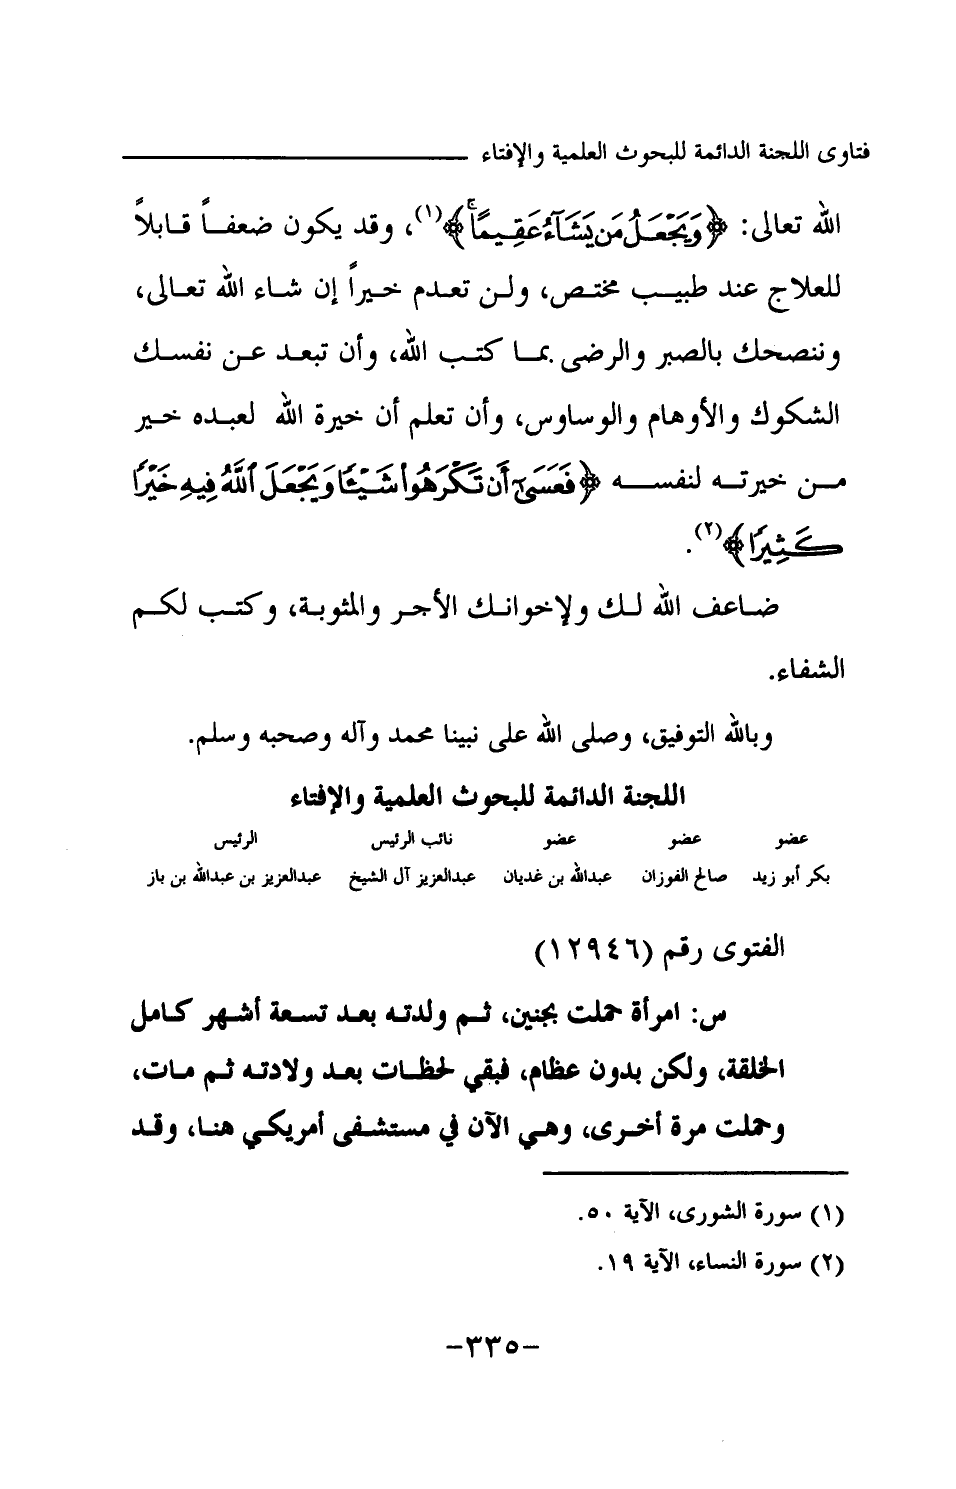 فتاوى اللجنة الدائمة للبحوث العلمية والإفتاء
الله تعالى: ﴿وَيَجْعَلُ مَن يَشَآءُ عَقِيمًاۚ﴾(١)، وقد يكون ضعفاً قابلاً
للعلاج عند طبيب مختص، ولن تعدم خيراً إن شاء الله تعالى،
وننصحك بالصبر والرضى بما كتب الله، وأن تبعد عن نفسك
الشكوك والأوهام والوساوس، وأن تعلم أن خيرة الله لعبده خير
من خيرته لنفسه ﴿فَعَسَىٰٓ أَن تَكْرَهُوا۟ شَيْـًٔا وَيَجْعَلَ ٱللَّهُ فِيهِ خَيْرًا
كَثِيرًا﴾(٢).
ضاعف الله لك ولإخوانك الأجر والمثوبة، وكتب لكم
الشفاء.
وبالله التوفيق، وصلى الله على نبينا محمد وآله وصحبه وسلم.
اللجنة الدائمة للبحوث العلمية والإفتاء
عضو عضو عضو نائب الرئيس الرئيس
بكر أبو زيد صالح الفوزان عبدالله بن غديان عبدالعزيز آل الشيخ عبدالعزيز بن عبدالله بن باز
الفتوى رقم (١٢٩٤٦)
س: امرأة حملت بجنين، ثم ولدته بعد تسعة أشهر كامل
الخلقة، ولكن بدون عظام، فبقي لحظات بعد ولادته ثم مات،
وحملت مرة أخرى، وهي الآن في مستشفى أمريكي هنا، وقد
(١) سورة الشورى، الآية ٥٠.
(٢) سورة النساء، الآية ١٩.
-٣٣٥-